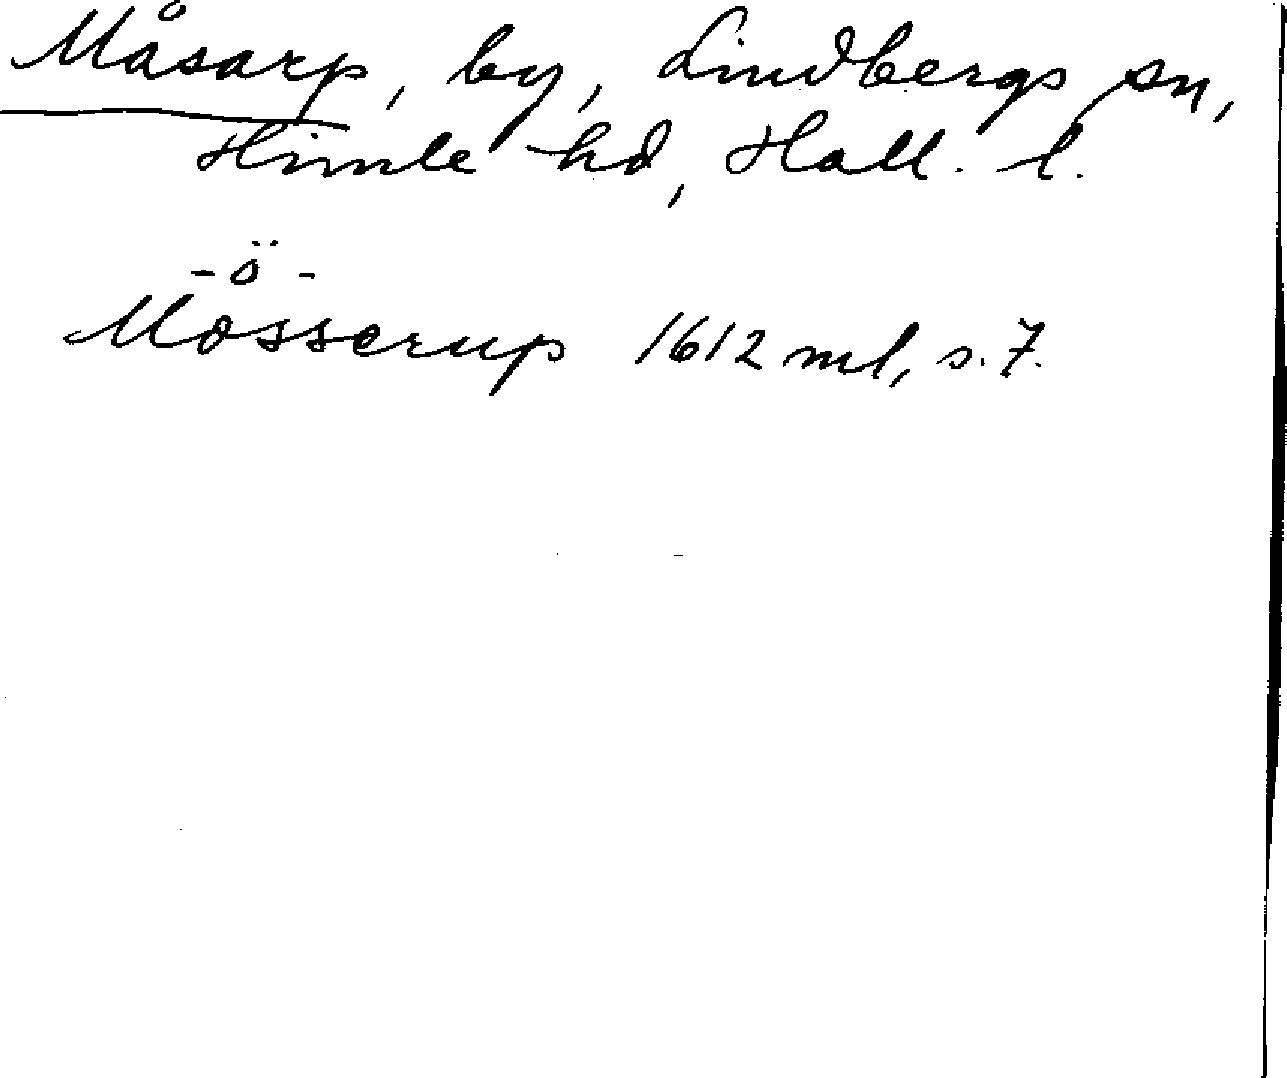 Måsarp, by, Lindbergs sn,
Himle hd, Hall. l.
-ö-
Mosserup 1612 ml, s. 7.